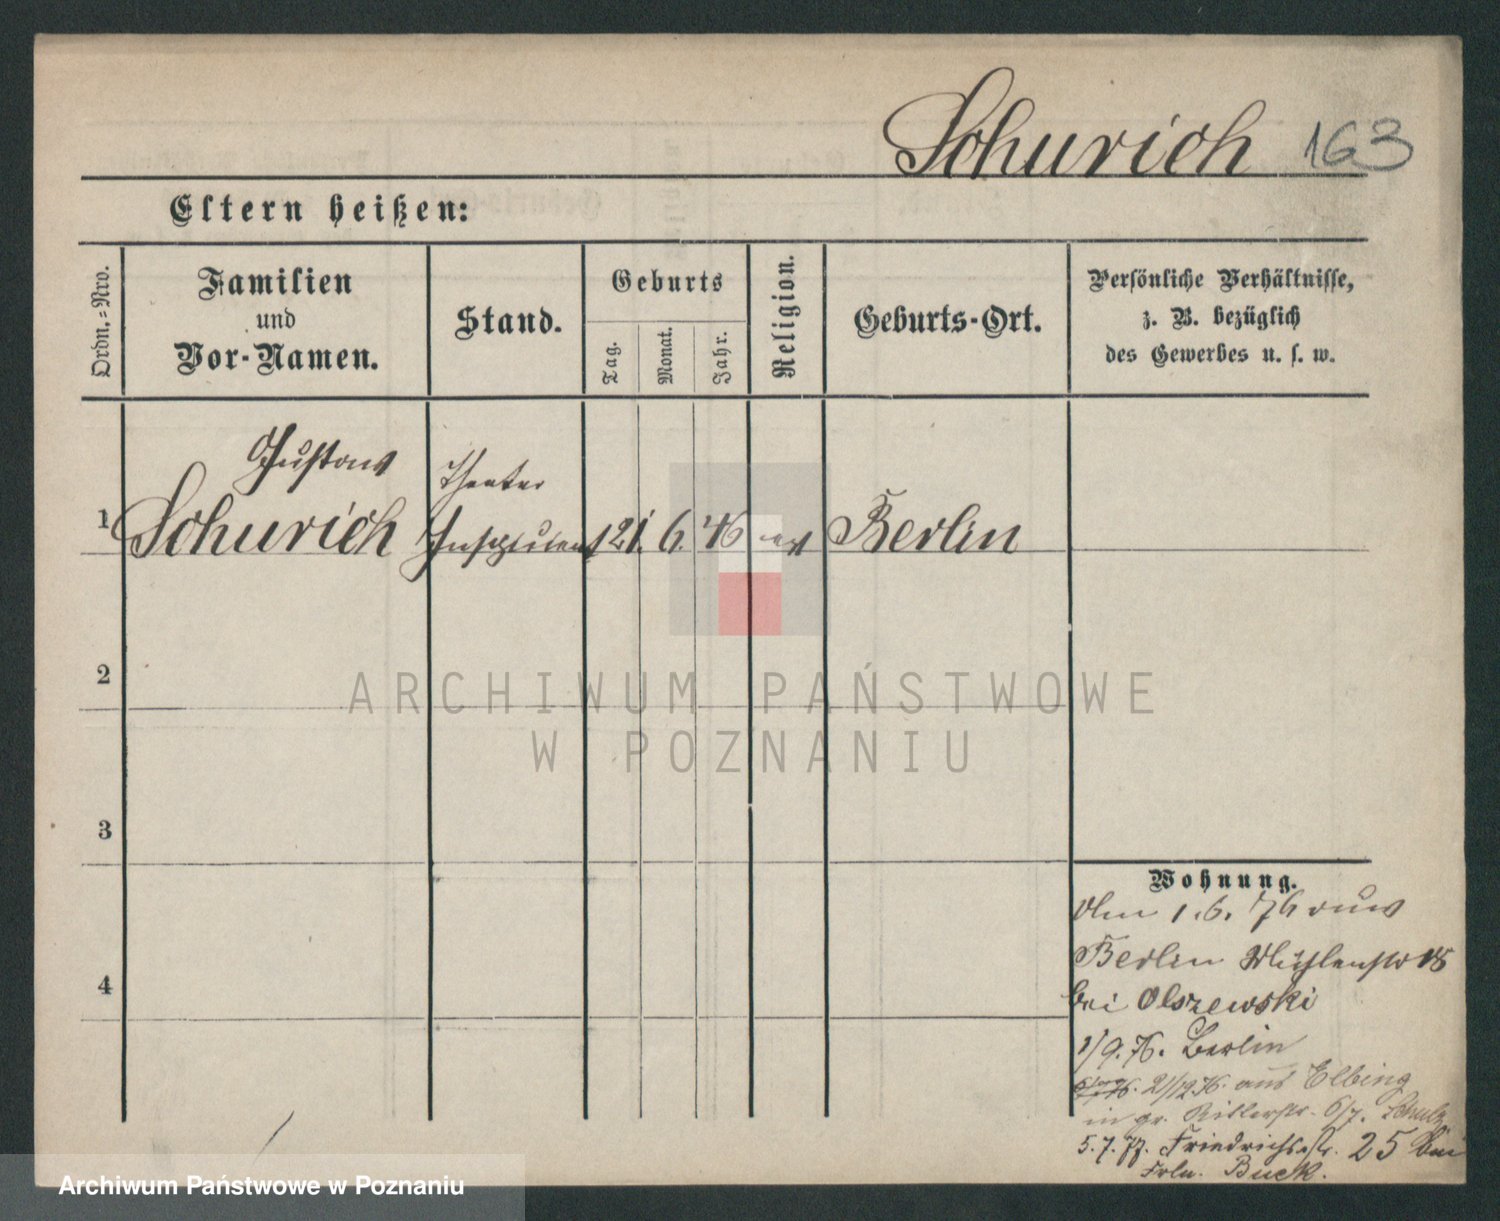 Schurich 163
Eltern heißen:
Ordn.=Nro.
Familien
und
Vor-Namen.
Stand.
Geburts
Tag.
Monat.
Jahr.
Religion.
Geburts-Ort.
Persönliche Verhältnisse,
z. B. bezüglich
des Gewerbes u. s. w.
Gustav
1 Schurich
Theater
21. 6. 46 Berlin
2
3
4
ARCHIWUM PAŃSTWOWE
W POZNANIU
Wohnung.
1.6. 76 aus
Berlin Mühlenstr 18
bei Olszewski
1/9. 76. Berlin
2/12 76. aus Elbing
in gr. Ritterstr. 6/7. Schulz
5. 7. 77. Friedrichsstr. 25 bei
Frln. Buck.
Archiwum Państwowe w Poznaniu